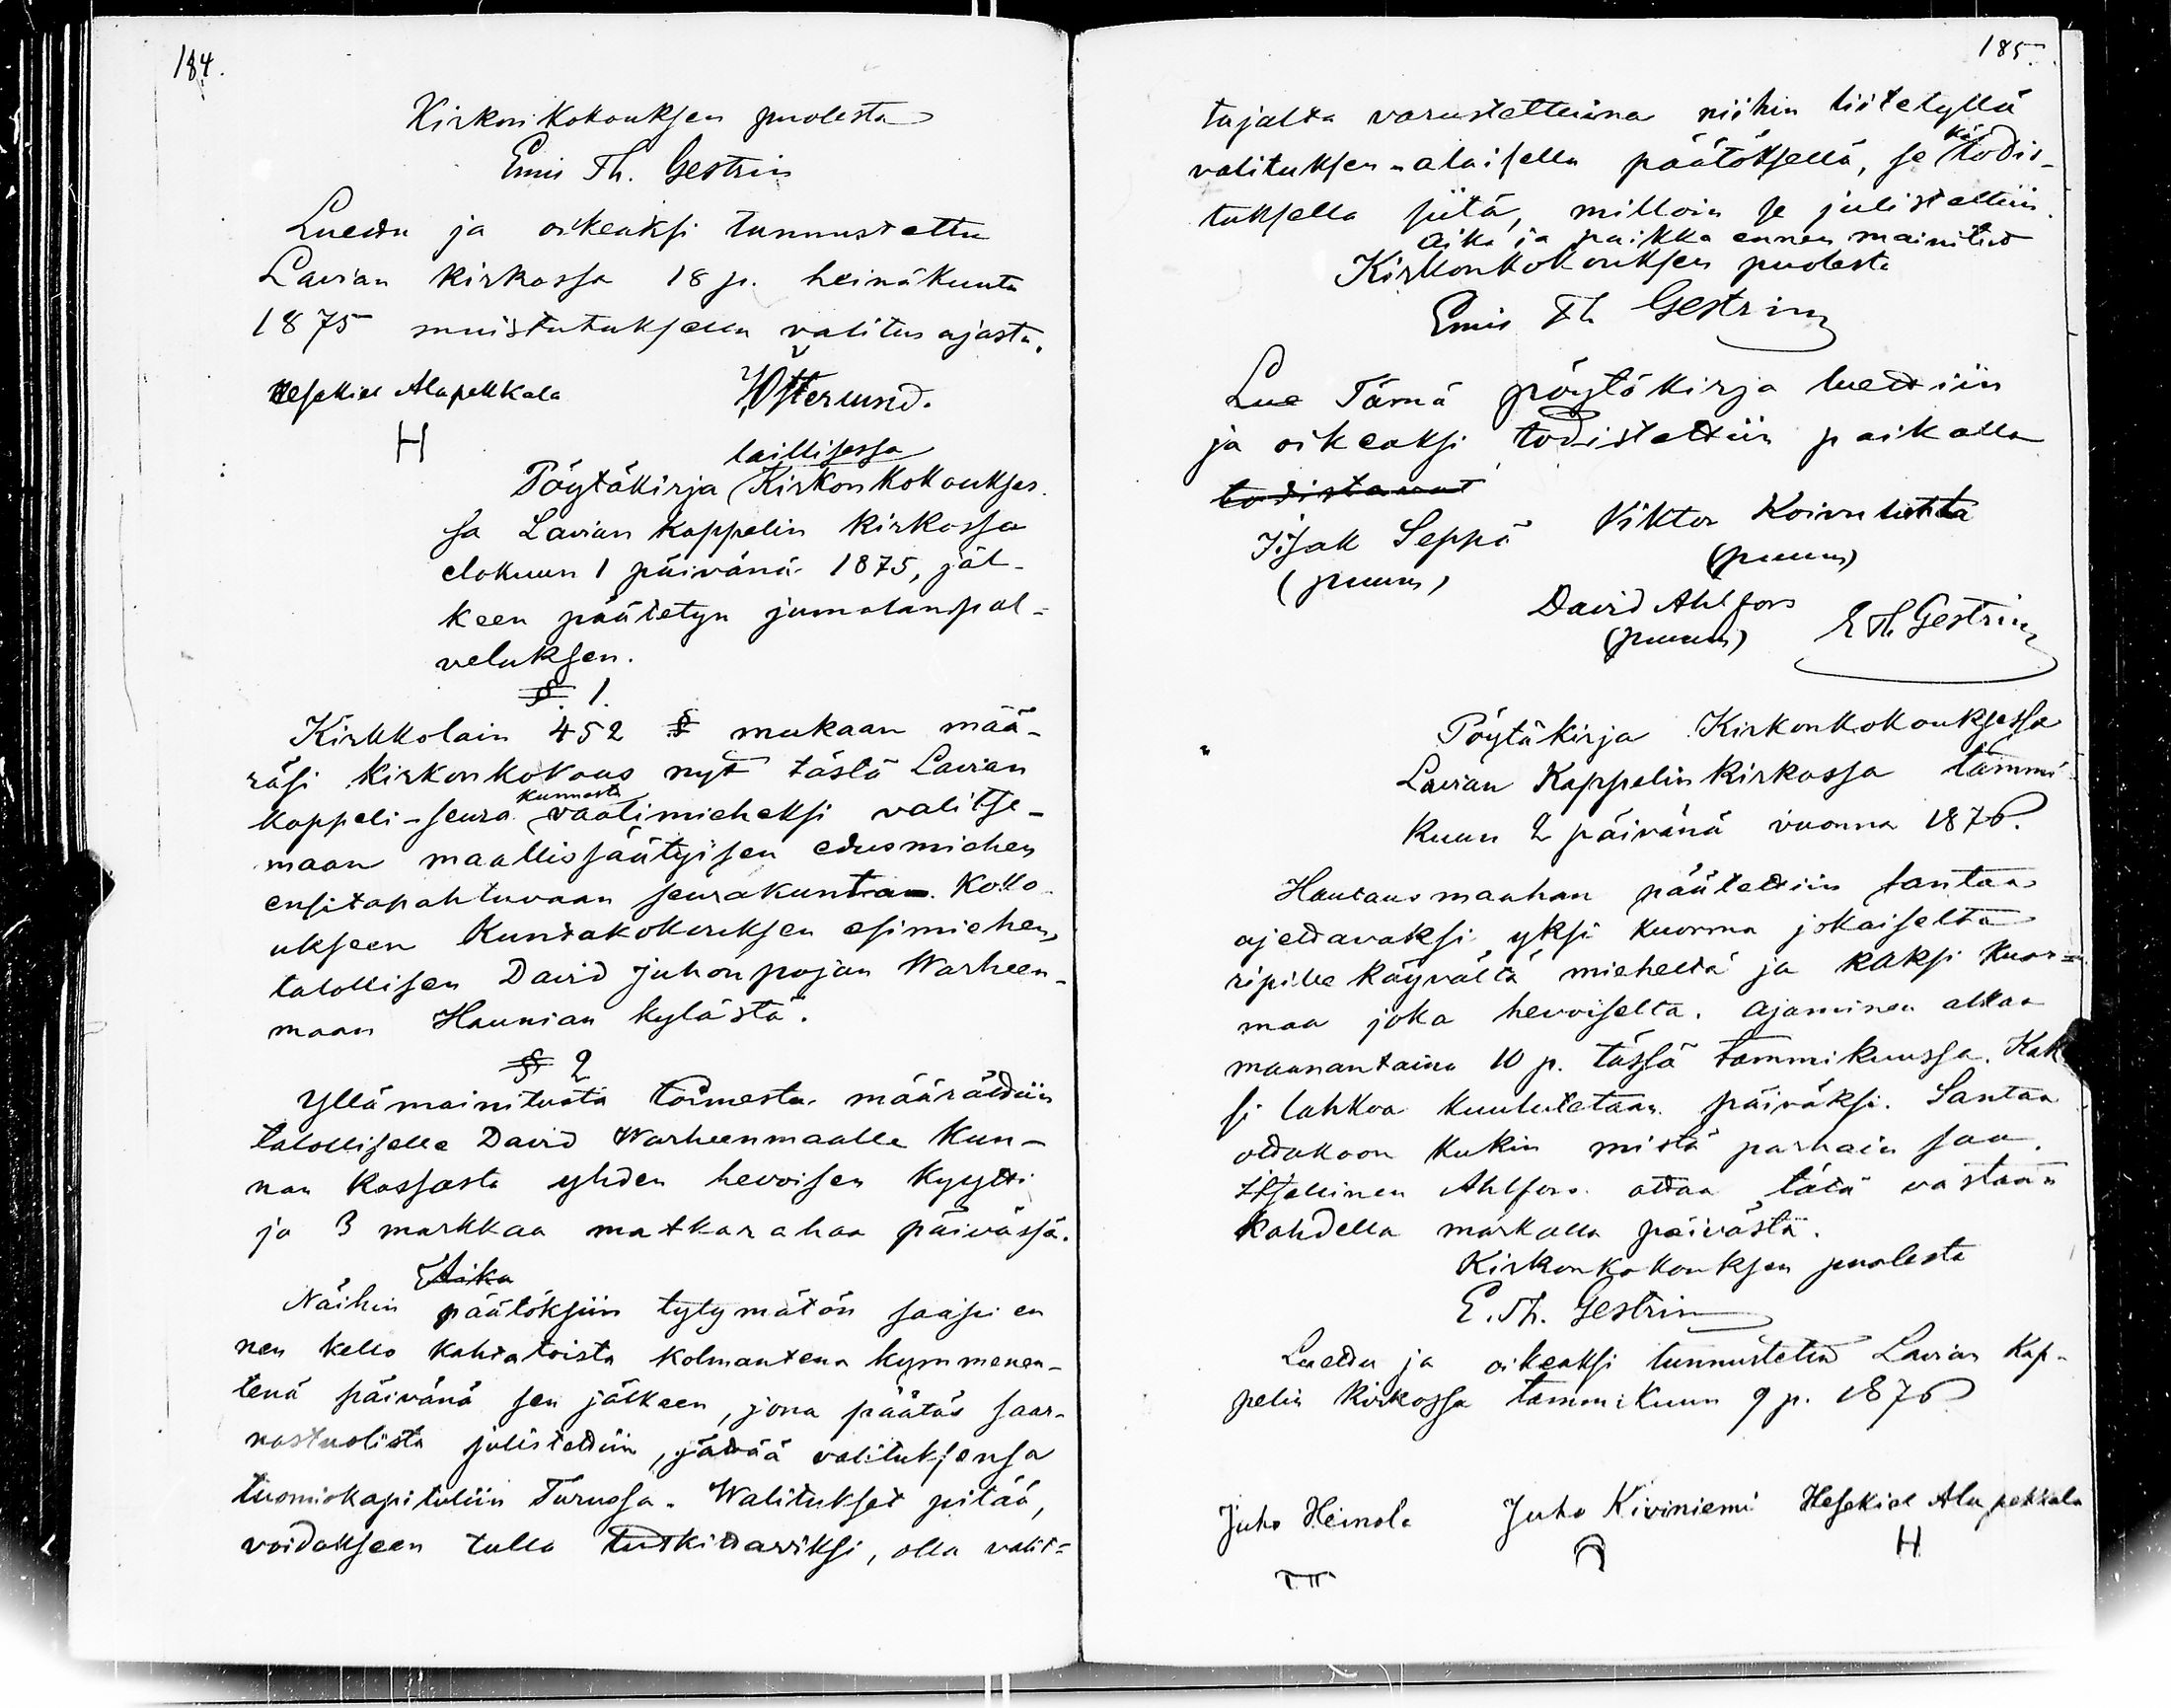 184.
Kirkonkokouksen puolesta
Emis Th. Gestrin
Luettu ja oikeaksi tunnustettu
Lavian kirkossa 18 p. heinäkuuta
1875 muistutuksella valitus ajasta.
Hesekiel Alapekkala Österlund.
H
laillisessa
Pöytäkirja Kirkonkokoukses
sa Lavian kappelin kirkossa
elokuun 1 päivänä 1875, jäl-
keen päätetyn jumalanpal-
veluksen.
§. 1.
Kirkkolain 452 § mukaan mää-
räsi kirkonkokous nyt tästä Lavian
kunnasta
kappeli-seura vaalimieheksi valitse-
maan maallissäätyisen edusmiehen
ensitapahtuvaan seurakuntaa. Koko-
ukseen Kuntakokouksen esimiehen,
talollisen David Juhonpojan Warheen-
maan Haunian kylästä.
§ 2
Yllämainitusta toimesta määrättiin
talolliselle David Warheenmaalle Kun-
nan kassasta yhden hevoisen kyyti
ja 3 markkaa matkarahaa päivässä.
Aika
Näihin päätöksiin tytymätön saapi en
nen kello kahtatoista kolmantena kymmenen-
tenä päivänä sen jälkeen, jona päätös saar-
nastuolista julistettiin, jättää valituksensa
tuomiokapituliin Turussa. Walitukset pitää,
voidakseen tulla tutkittaviksi, olla valit=
185.
tajalta varustettuina niihin liitetyllä
valituksen-alaisella päätöksellä, se todis-
kä
tuksella siitä, milloin se julistettiin.
Aika ja paikka ennen mainitut
Kirkonkokouksen puolesta
Emis Th Gestrin
Lue Tämä pöytäkirja luettiin
ja oikeaksi todistettiin paikalla
todistavat
Iisak Seppä Viktor Koivuluhta
(puum) (puum)
David Ahlfors
(puum) E Th Gestrin
Pöytäkirja Kirkonkokouksessa
Lavian Kappelin kirkossa tammi
kuun 2 päivänä vuonna 1876.
Hautausmaahan päätettiin santaa
ajettavaksi yksi kuorma jokaiselta
ripille käyvältä mieheltä ja kaksi kuor=
maa joka hevoiselta. Ajaminen alkaa
maanantaina 10 p. tässä tammikuussa. Kak
si lahkoa kuulutetaan päiväksi. Santaa
ottakoon kukin mistä parhain saa.
Itsellinen Ahlfors ottaa tätä vastaan
kahdella markalla päivästä.
Kirkonkokouksen puolesta
E. Th. Gestrin
Luettu ja oikeaksi tunnustettu Lavian Kap-
pelin kirkossa tammikuun 9 p. 1876
Juho Heinola Juho Kiviniemi Hesekiel Alapekkala
H